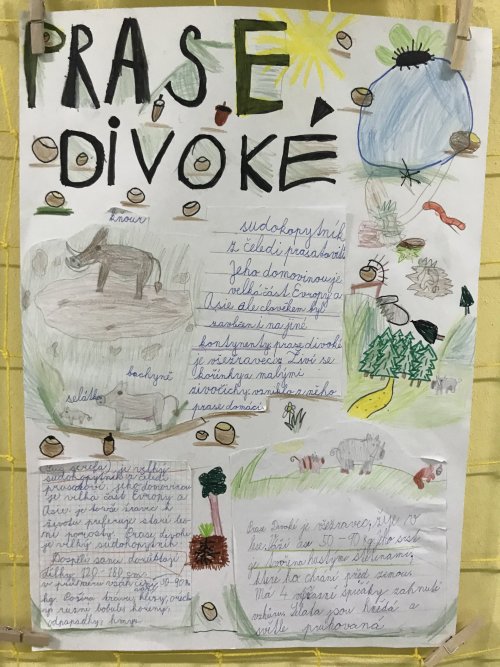 PRASE
DIVOKÉ
knour
sudokopytník
z čeledi prasatovití
Jeho domovinou je
velká část Evropy a
Asie ale člověkem byl
zavlečen i na jiné
kontynenty prase divoké
je všežravec. Živí se
kořínky a malými
živočichy. vzniklo z něho
prase domácí.
bachyně
selátko
je velký
sudokopytník z čeledi
prasatovití. jeho domovinou
je velká část Evropy a
Asie. je tvor
životu preferuje staré les-
ní porosty. Prase divoké
je velký sudokopytník
Dospělí samci dorůstají
délky 120-180 cm.
v kohoutku
kg. Požírá trávu, hlízy, ořechy
různé bobule, kořeny,
odpadky, hmyz
Prase Divoké je všežravec, žije v
lese. Váží asi 50-90 kg. Jeho srst
je tvořena hustými štětinami,
které ho chrání před zimou.
Má 4 výrazné špičáky zahnuté
vzhůru. Selata jsou hnědá a
světle pruhovaná